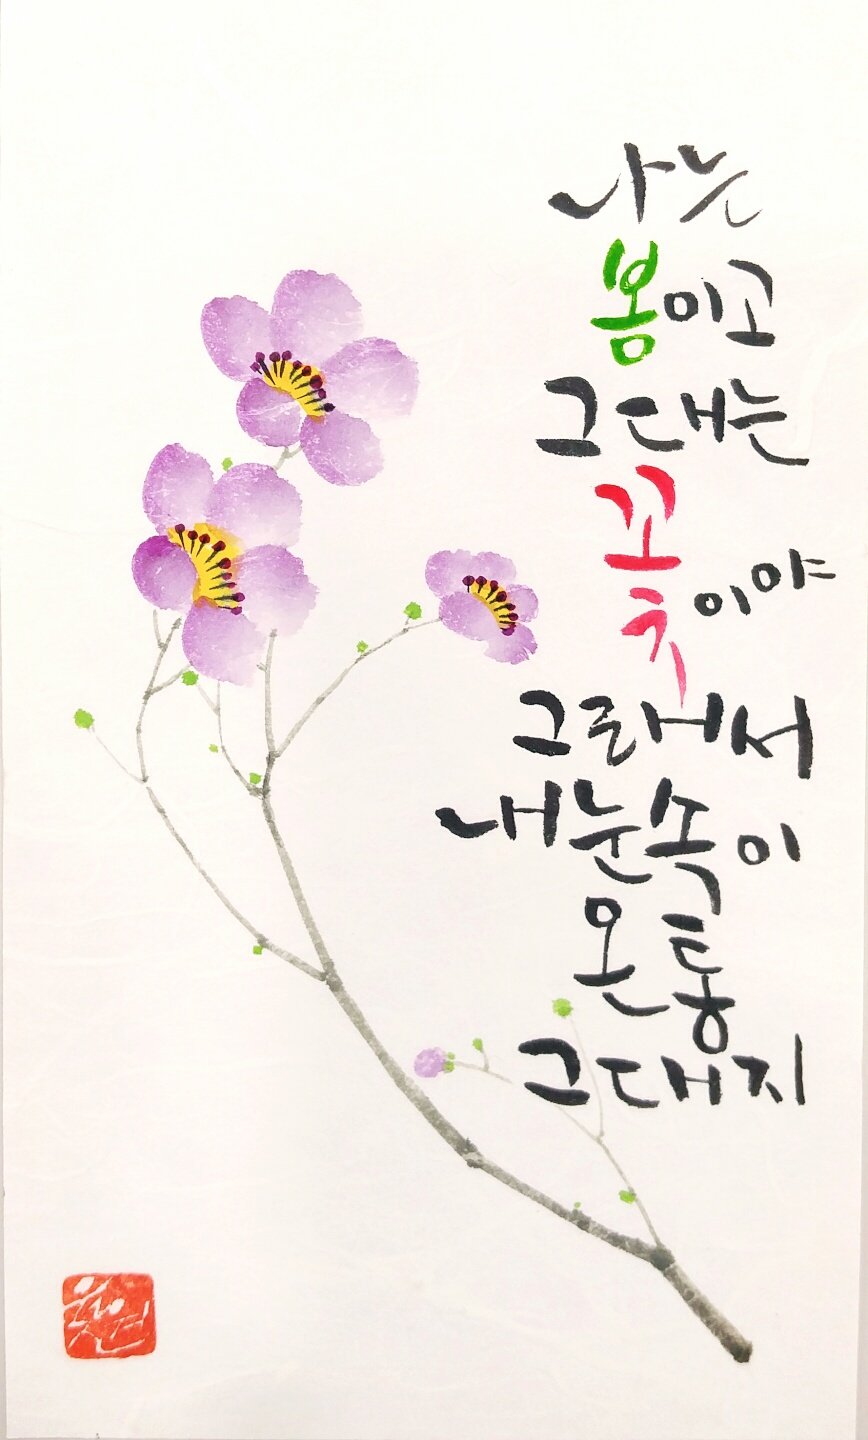 나는
봄이고
그대는
꽃이야
그래서
내눈속이
온통
그대지